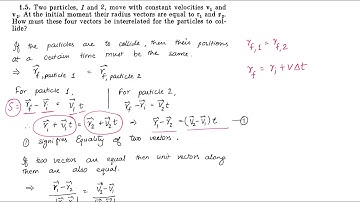 1.5. Two particles, 1 and 2, move with constant velocities v₁ and
v₂. At the initial moment their radius vectors are equal to r₁ and r₂.
How must these four vectors be interrelated for the particles to col-
lide?
If the particles are to collide, then their positions
at a certain time must be the same.
⇒ r⃗f, particle 1 = r⃗f, particle 2
For particle 1, For particle 2,
S = r⃗f − r⃗₁ = v⃗₁t r⃗f − r⃗₂ = v⃗₂t
∴ r⃗₁ + v⃗₁t = r⃗₂ + v⃗₂t ⇒ r⃗₁ − r⃗₂ = (v⃗₂ − v⃗₁)t — ①
① signifies Equality of two vectors.
If two vectors are equal then unit vectors along
them are also equal.
⇒ r⃗₁ − r⃗₂ = v⃗₂ − v⃗₁
rf,1 = rf,2
rf = ri + vΔt